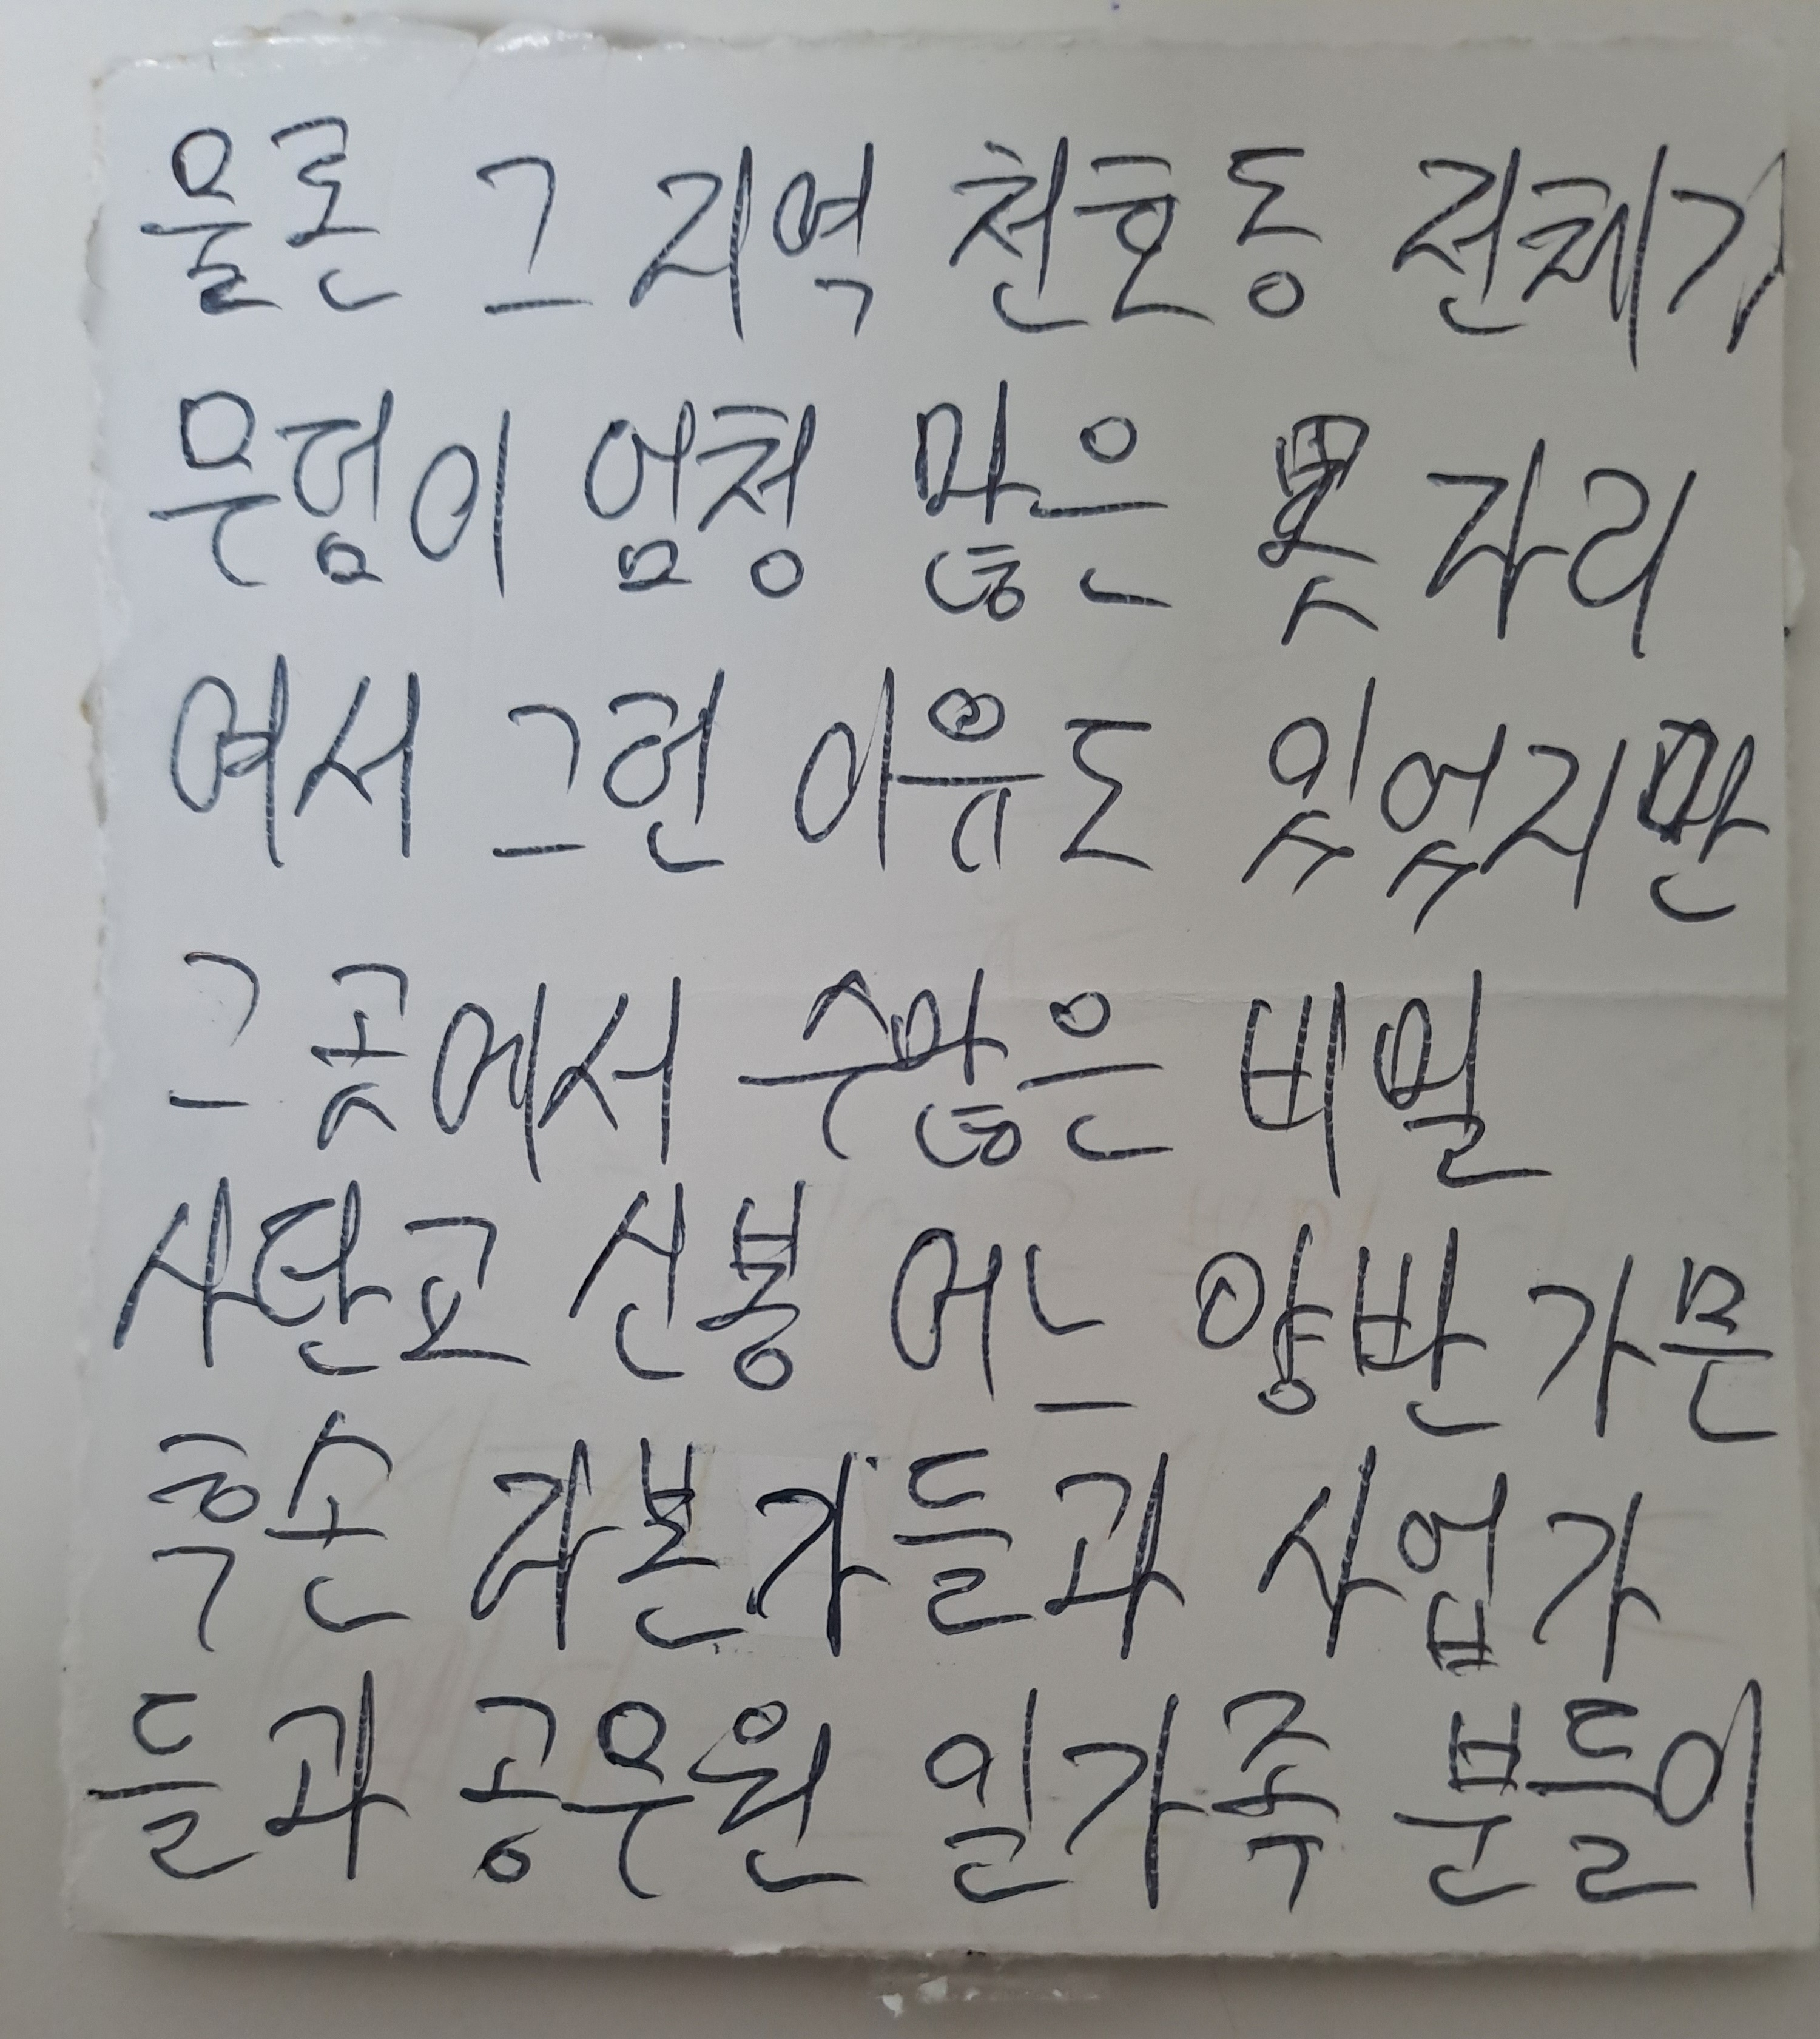 물론 그 지역 천호동 전체가
무덤이 엄청 많은 묫자리
여서 그런 이유도 있었지만
그곳에서 수많은 비밀
사단고 신봉 어느 양반 가문
흑손 자본가들과 사업가
들과 공무원 일가족 분들이